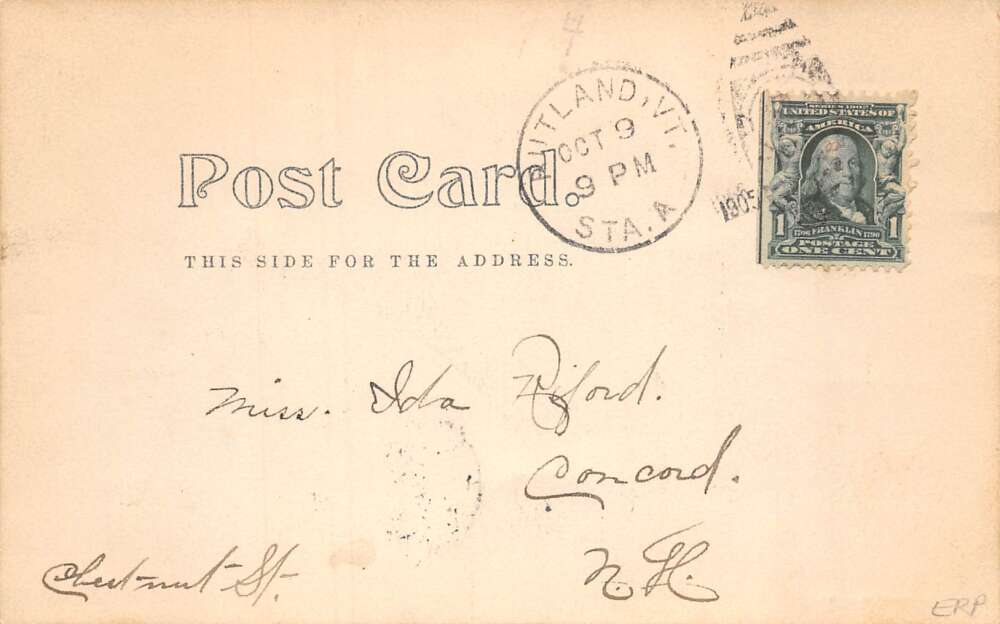 RUTLAND, VT.
OCT 9
9 PM
STA. A
1905
SERIES 1902
UNITED STATES OF
AMERICA
1706 FRANKLIN 1790
1 POSTAGE 1
ONE CENT
Post Card.
THIS SIDE FOR THE ADDRESS.
Miss. Ida Riford.
Concord.
Chestnut St. N. H.
ERP